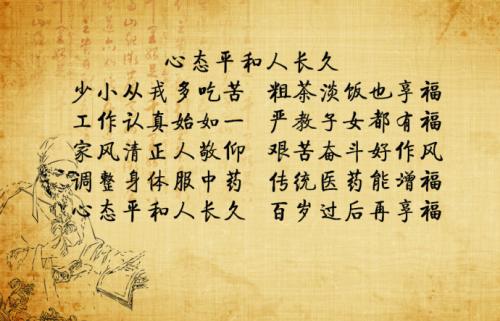 心态平和人长久
少小从戎多吃苦 粗茶淡饭也享福
工作认真始如一 严教子女都有福
家风清正人敬仰 艰苦奋斗好作风
调整身体服中药 传统医药能增福
心态平和人长久 百岁过后再享福